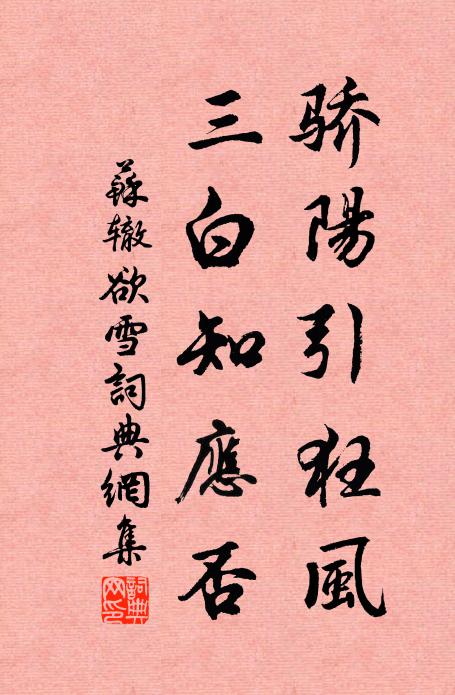 骄陽引狂風
三白知應否
蘇辙欲雪詞典網集
詞典网印